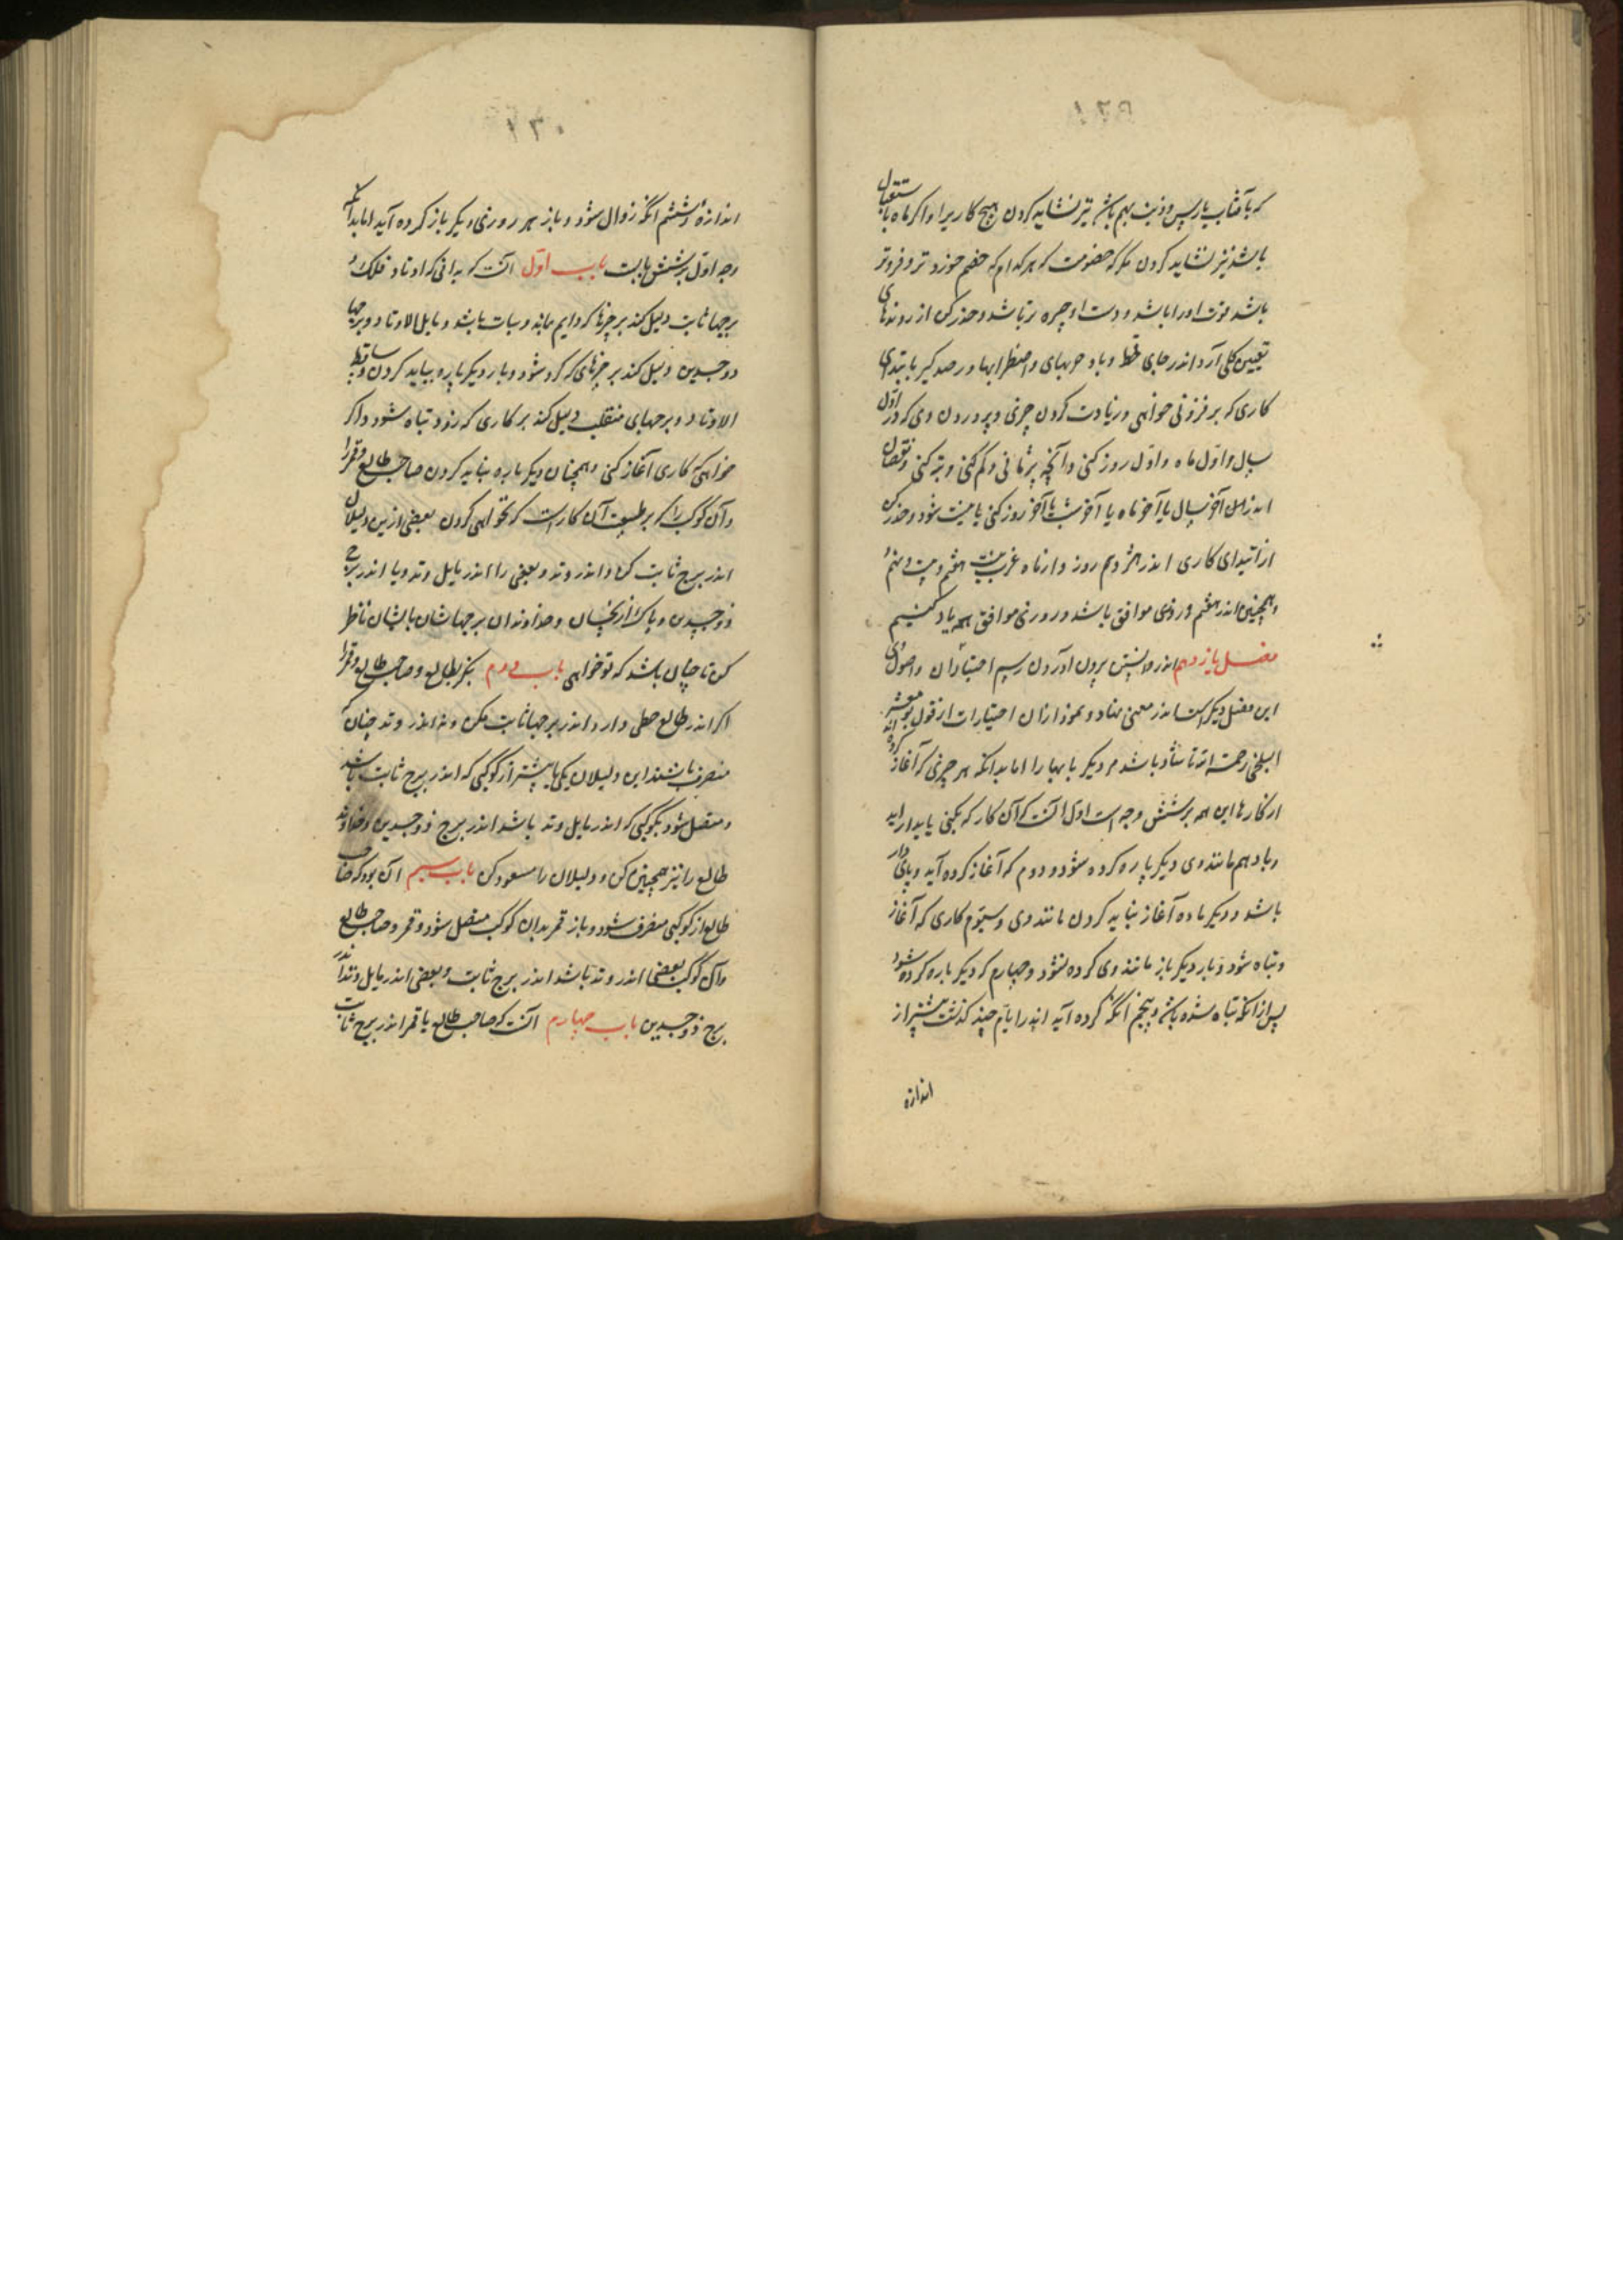 که با آفتاب یا رأس و ذنب بهم باشد نیز نشاید کردن هیچ کار را و اگر ماه با استقبال
باشد نیز نشاید کردن مگر که خصومت که هر کدام که خصم خورد تر و فروتر
باشد قوت او را باشد و دست او چیره تر باشد و حذر کن از روزهای
کلی آرد اندر جای قحط و باد حربهای و اضطرابها و رصد گیر بابتدای
کاری که بر فزونی خواهی و زیادت کردن چیزی و پروردن وی که در اول
سال و اول ماه و اول روز کنی و آنچه و کم کنی و تبه کنی و نقصان
اندر آن آخر سال یا آخر ماه یا آخر شب یا آخر روز کنی شود و حذر کن
از ابتدای کاری اندر هژدهم روز و از ماه عرب بیست هفتم و بیست و نهم
و همچنین اندر هفتم و روزی موافق باشد و روزی موافق همه یاد کنیم
فصل یازدهم اندر دانستن برون آوردن رسم اختیاران و اصول
این فصل دیگر است اندر معنی نهاد و نمودار آن اختیارات از قول بو معشر
البلخی رحمت الله تا باشد مر دیگر بابها را اما بدانکه هر چیزی که آغاز کرده آید
از کارها این همه بر شش وجه است اول آنست که آن کار که بکنی پایدار آید
و باز هم مانند وی دیگر باره کرده شود و دوم که آغاز کرده آید و پای دار
باشد و دیگر باره آغاز نباید کردن مانند وی و سیّوم کاری که آغاز
و تباه شود و بار دیگر باز مانند وی کرده نشود و چهارم که دیگر باره کرده شود
پس از آنکه تباه شده باشد و پنجم آنکه کرده آید اندر ایام چند گذشت بیشتر از
اندازه
اندازه و ششم آنکه زوال شود و باز هر روزی دیگر باز کرده آید اما بدانکه
وجه اول بر شش بابست باب اوّل آنست که بدانی که اوتاد فلک و
برجها ثابت دلیل کند بر چیزها که دایم بماند و بثبات باشد و مایل الاوتاد و برجها
ذوجسدین دلیل کند بر چیزهای که کرد شود و بار دیگر باره بباید کردن و ساقط
الاوتاد و برجهای منقلب دلیل کند بر کاری که زود تباه شود و اگر
خواهی که کاری آغاز کنی و همچنان دیگر باره نباید کردن صاحب طالع و قمر را
و آن کوکب را که بر طبیعت آن کار است که تو خواهی کردن بعضی ازین دلیلان
اندر برج ثابت کن و اندر وتد و بعضی را اندر مایل وتد و یا اندر برج
ذوجسدین و پاک از نحسان و خداوندان برجهاشان بایشان ناظر
کن تا چنان باشد که تو خواهی باب دوم بنگر بطالع و صاحب طالع و قمر را
اگر اندر طالع حظی دارد اندر برجها ثابت مکن و نه اندر وتد چنان که
منصرف باشند این دلیلان یکی یا بیشتر از کوکبی که اندر برج ثابت باشد
و متصل شود بکوکبی که اندر مایل وتد باشد اندر برج ذوجسدین و خداوند
طالع را نیز همچنین کن و دلیلان را مسعود کن باب سیم آن بود که صاحب
طالع از کوکبی منصرف شود و باز قمر بدان کوکب متصل شود و قمر و صاحب طالع
و آن کوکب بعضی اندر وتد باشد اندر برج ثابت و بعضی اندر مایل وتد اندر
برج ذوجسدین باب چهارم آنست که صاحب طالع یا قمر اندر برج ثابت